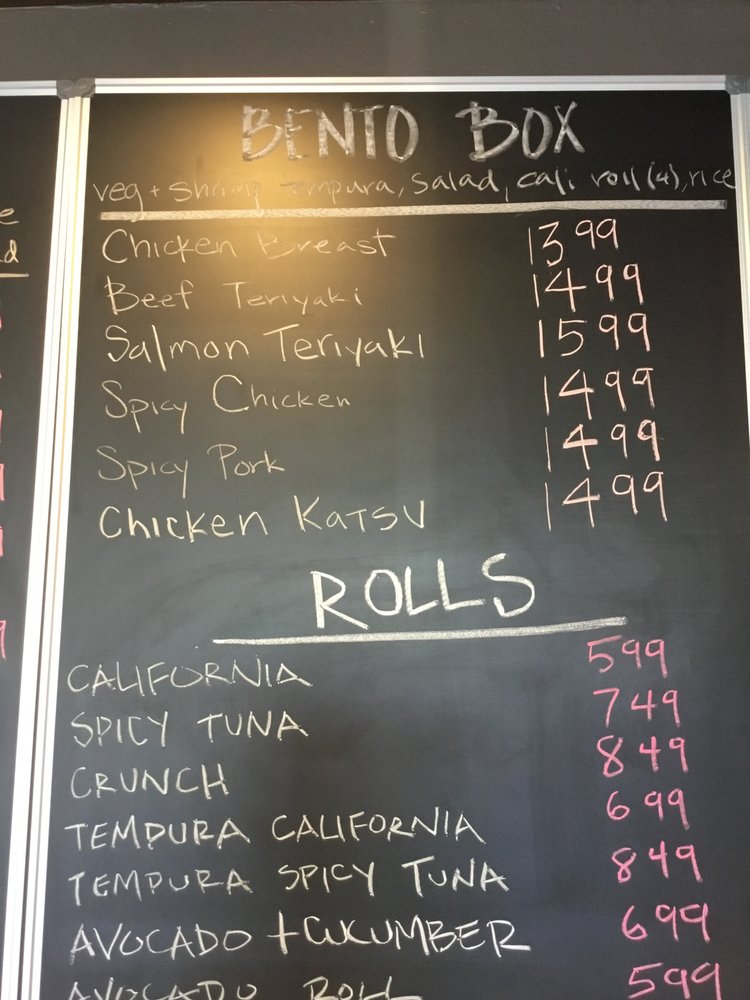 BENTO BOX
veg + shrimp tempura, salad, cali roll (4), rice
Chicken Breast 1399
Beef Teriyaki 1499
Salmon Teriyaki 1599
Spicy Chicken 1499
Spicy Pork 1499
Chicken Katsu 1499
ROLLS
CALIFORNIA 599
SPICY TUNA 749
CRUNCH 849
TEMPURA CALIFORNIA 699
TEMPURA SPICY TUNA 849
AVOCADO + CUCUMBER 699
AVOCADO ROLL 599